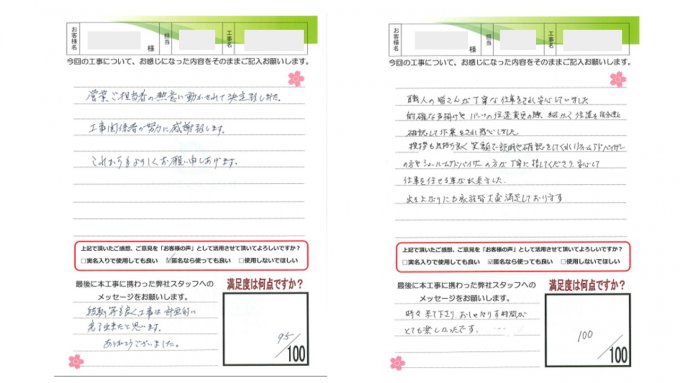 お客様名
様
担当
工事名
今回の工事について、お感じになった内容をそのままご記入お願いします。
営業ご担当者の熱意に動かされて決定致しました。
工事関係者が努力に感謝致します。
これからもよろしくお願い申しあげます。
上記で頂いたご感想、ご意見を「お客様の声」として活用させて頂いてよろしいですか？
□実名入りで使用しても良い ☑匿名なら使っても良い □使用しないでほしい
最後に本工事に携わった弊社スタッフへの
メッセージをお願いします。
工事は
完了出来たと思います。
ありがとうございました。
満足度は何点ですか？
95
/100
お客様名
様
担当
工事名
今回の工事について、お感じになった内容をそのままご記入お願いします。
職人の皆さんが丁寧な仕事をされ安心していました
確認して作業をされ感心しました。
挨拶も気持ち良く笑顔で説明や確認をしてくれ
の方が丁寧に接してくださり、安心して
仕事を任せる事が出来ました。
出来上がりにも家族皆大変満足しております
上記で頂いたご感想、ご意見を「お客様の声」として活用させて頂いてよろしいですか？
□実名入りで使用しても良い ☑匿名なら使っても良い □使用しないでほしい
最後に本工事に携わった弊社スタッフへの
メッセージをお願いします。
時々来て下さり、おしゃべりする時間が
とても楽しかったです。
満足度は何点ですか？
100
/100